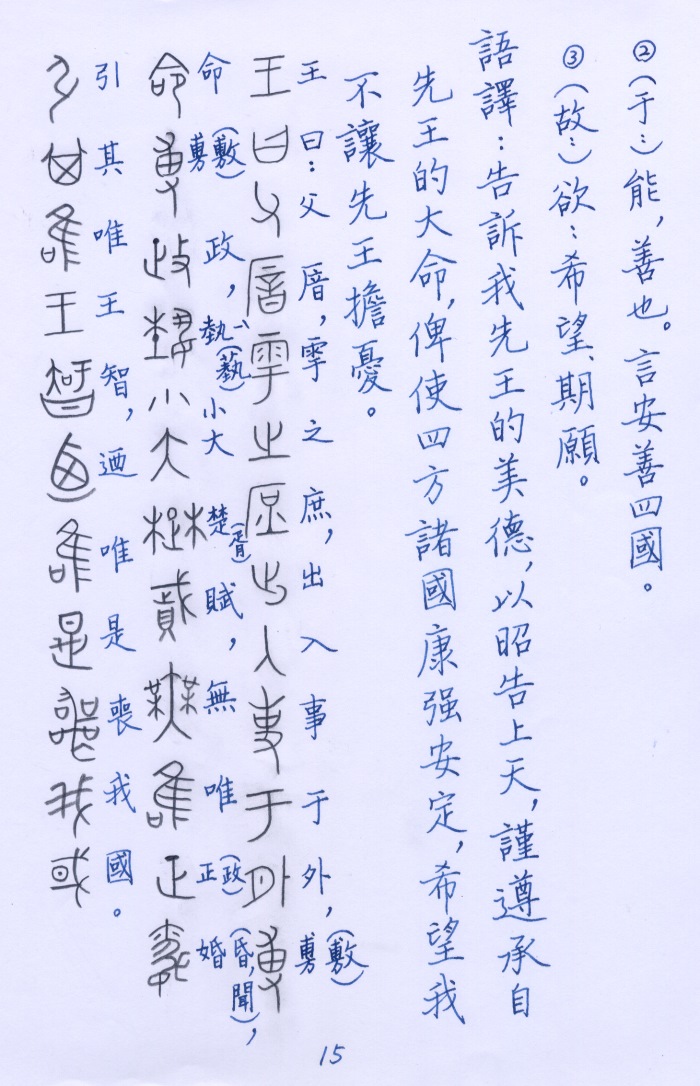 ②(于…)能，善也。言安善四國。
③(故…)欲：希望、期願。
語譯：告訴我先王的美德，以昭告上天，謹遵承自
先王的大命，俾使四方諸國康强安定，希望我
不讓先王擔憂。
王曰：父厝，雩之庶，出入事于外，尃(敷)
命尃(敷)政，埶(藝)小大楚(胥)賦，無唯正(政)婚(昏，聞)，
引其唯王智，迺唯是喪我國。
15